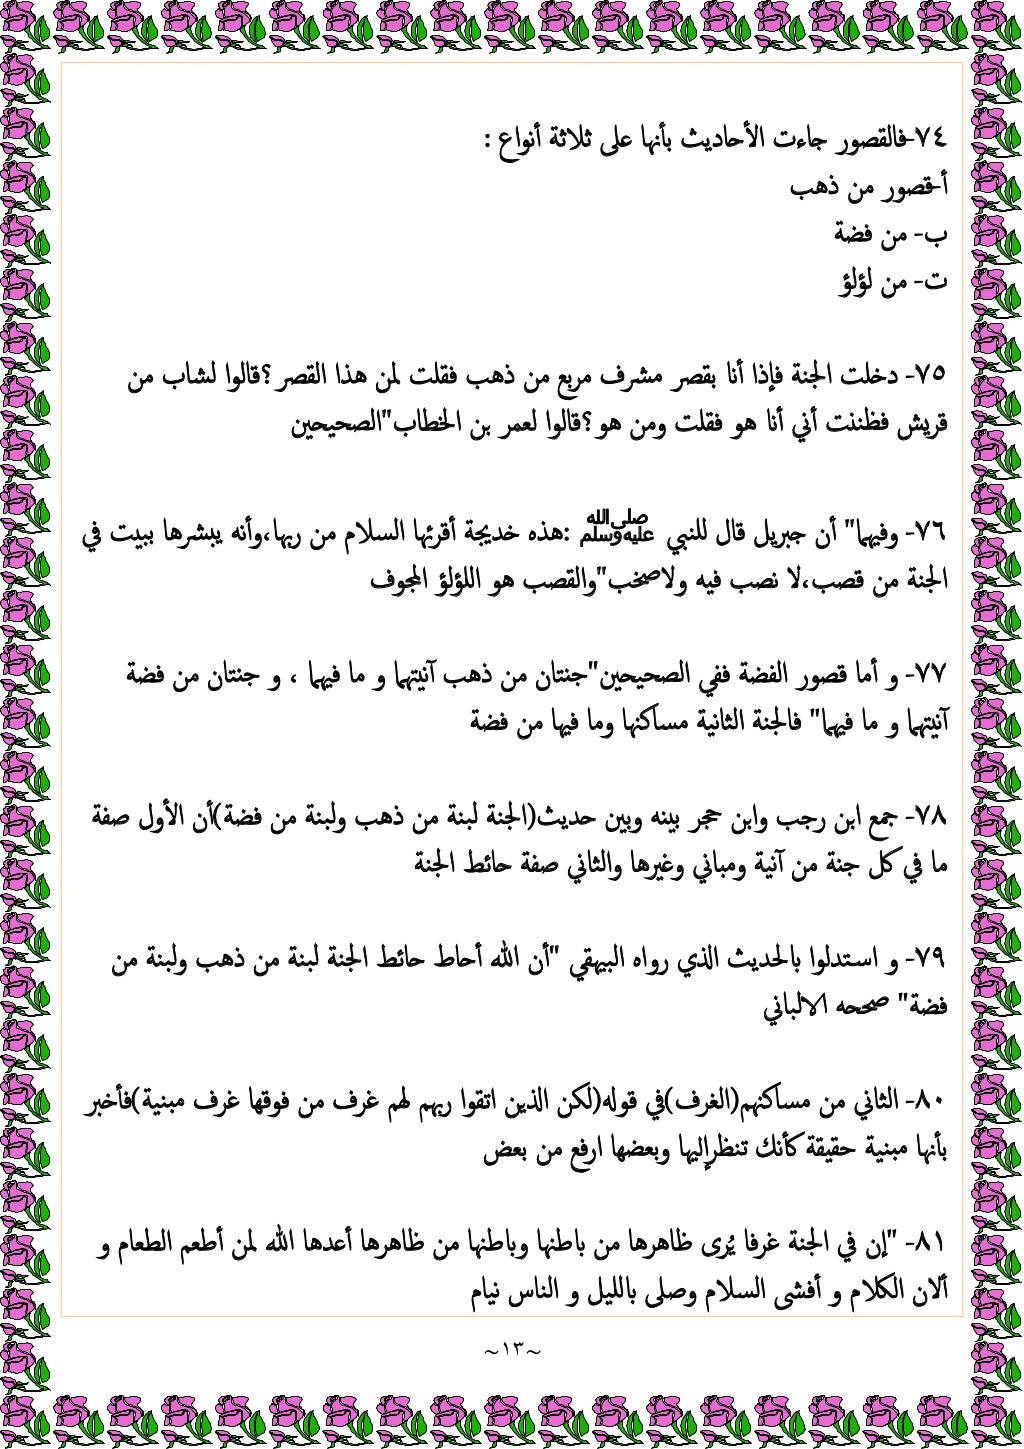 ٧٤-فالقصور جاءت الأحاديث بأنها على ثلاثة أنواع :
أ-قصور من ذهب
ب- من فضة
ت- من لؤلؤ
٧٥- دخلت الجنة فإذا أنا بقصر مشرف مربع من ذهب فقلت لمن هذا القصر ؟قالوا لشاب من
قريش فظننت أني أنا هو فقلت ومن هو ؟قالوا لعمر بن الخطاب"الصحيحين
٧٦- وفيهما" أن جبريل قال للنبي ﷺ :هذه خديجة أقرئها السلام من ربها،وأنه يبشرها ببيت في
الجنة من قصب،لا نصب فيه ولاصخب"والقصب هو اللؤلؤ المجوف
٧٧- و أما قصور الفضة ففي الصحيحين"جنتان من ذهب آنيتهما و ما فيهما ، و جنتان من فضة
آنيتهما و ما فيهما" فالجنة الثانية مساكنها وما فيها من فضة
٧٨- جمع ابن رجب وابن حجر بينه وبين حديث(الجنة لبنة من ذهب ولبنة من فضة)أن الأول صفة
ما في كل جنة من آنية ومباني وغيرها والثاني صفة حائط الجنة
٧٩- و استدلوا بالحديث الذي رواه البيهقي "أن الله أحاط حائط الجنة لبنة من ذهب ولبنة من
فضة" صححه الالباني
٨٠- الثاني من مساكنهم(الغرف)في قوله(لكن الذين اتقوا ربهم لهم غرف من فوقها غرف مبنية)فأخبر
بأنها مبنية حقيقة كأنك تنظرإليها وبعضها ارفع من بعض
٨١- "إن في الجنة غرفا يُرى ظاهرها من باطنها وباطنها من ظاهرها أعدها الله لمن أطعم الطعام و
ألان الكلام و أفشى السلام وصلى بالليل و الناس نيام
~١٣~